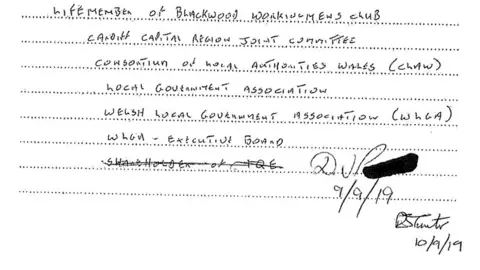 LIFEMEMBER OF BLACKWOOD WORKINGMENS CLUB
CARDIFF CAPITAL REGION JOINT COMMITTEE
CONSORTIUM OF LOCAL AUTHORITIES WALES (CLAW)
LOCAL GOVERNMENT ASSOCIATION
WELSH LOCAL GOVERNMENT ASSOCIATION (WLGA)
WLGA - EXECUTIVE BOARD
SHAREHOLDER OF IQE
9/9/19
10/9/19